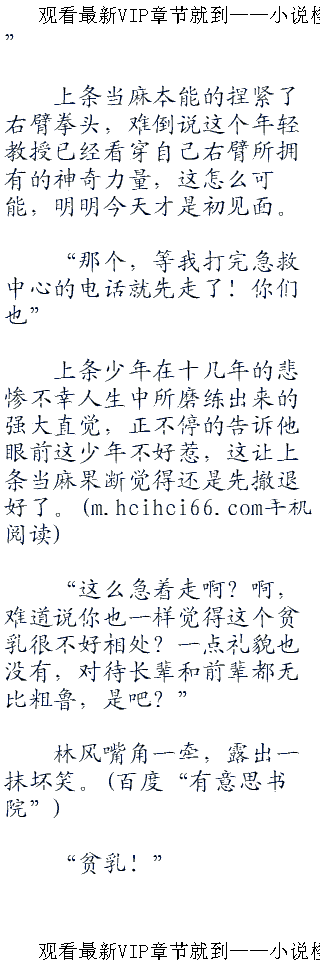 观看最新VIP章节就到——小说
”
上条当麻本能的捏紧了
右臂拳头，难倒说这个年轻
教授已经看穿自己右臂所拥
有的神奇力量，这怎么可
能，明明今天才是初见面。
“那个，等我打完急救
中心的电话就先走了！你们
也”
上条少年在十几年的悲
惨不幸人生中所磨练出来的
强大直觉，正不停的告诉他
眼前这少年不好惹，这让上
条当麻果断觉得还是先撤退
好了。(m.hcihci66.com手机
阅读)
“这么急着走啊？啊，
难道说你也一样觉得这个贫
乳很不好相处？一点礼貌也
没有，对待长辈和前辈都无
比粗鲁，是吧？”
林风嘴角一牵，露出一
抹坏笑。(百度“有意思书
院”)
“贫乳！”
观看最新VIP章节就到——小说